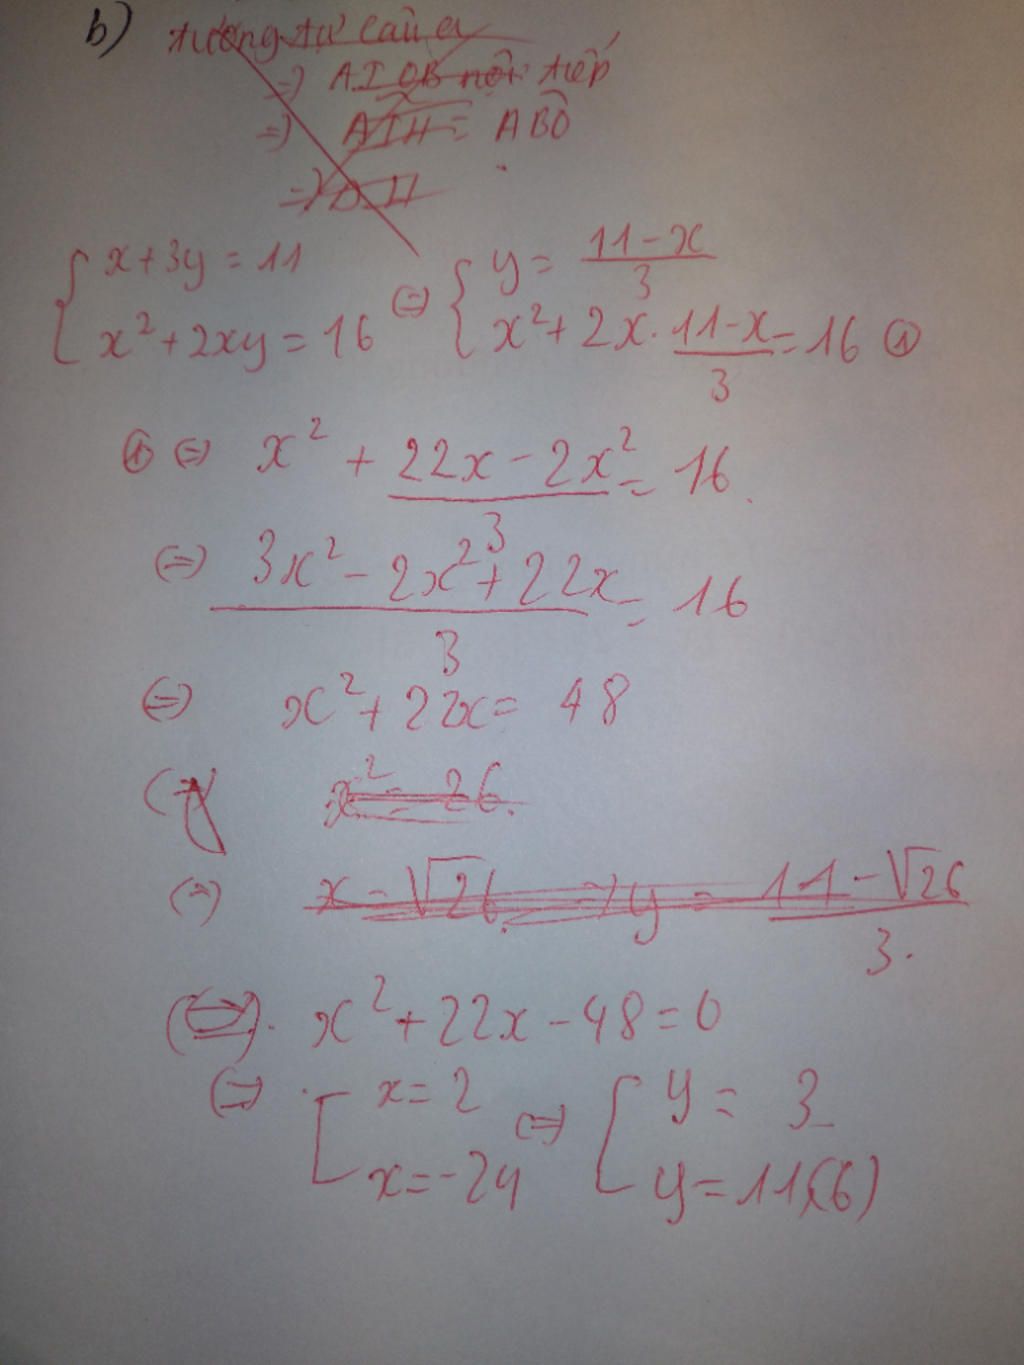 b) tương tự câu a
=) AIOB nội tiếp
=) AIH = ABO
=)
{ x + 3y = 11 (=) { y = (11 - x)/3
{ x² + 2xy = 16 { x² + 2x · (11-x)/3 = 16 ①
① (=) x² + (22x - 2x²)/3 = 16
(=) (3x² - 2x² + 22x)/3 = 16
(=) x² + 22x = 48
(=) x² = 26
(=) x = √26 => y = (11 - √26)/3
(=) x² + 22x - 48 = 0
(=) [ x = 2 (=) [ y = 3
[ x = -24 [ y = 11,(6)